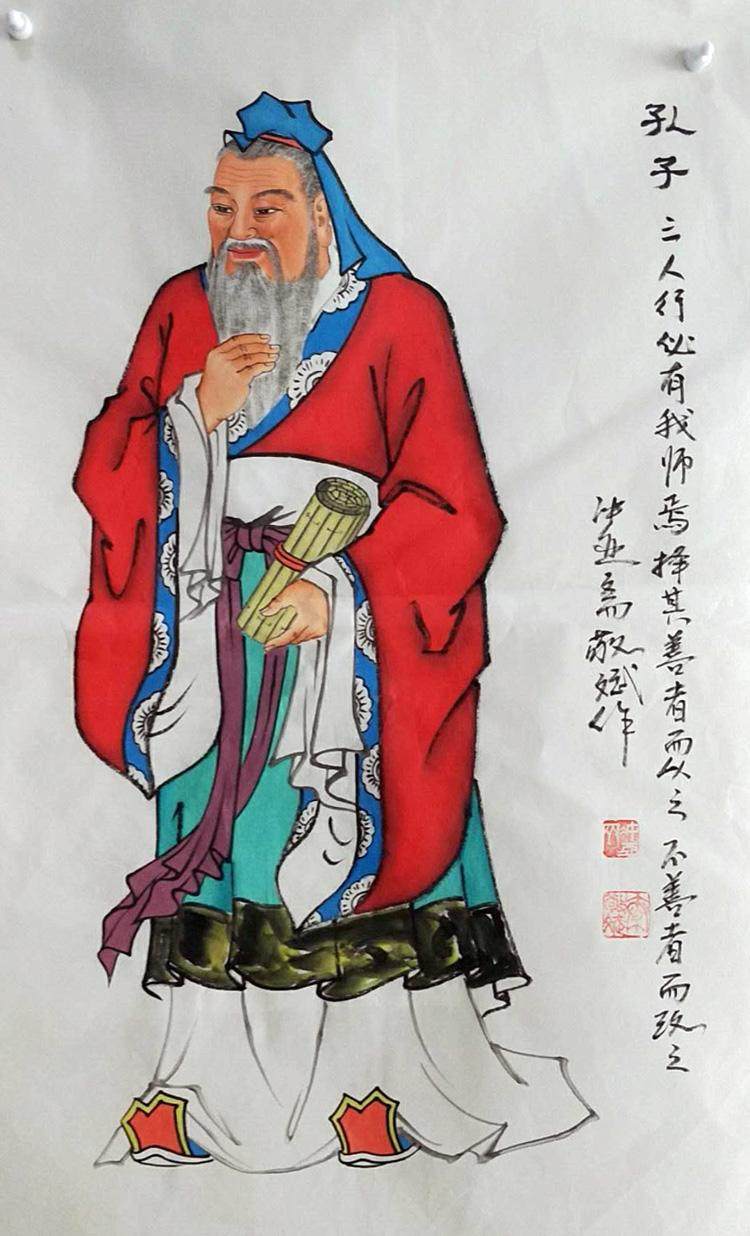 孔子 三人行必有我师焉择其善者而从之 不善者而改之
敬斌作